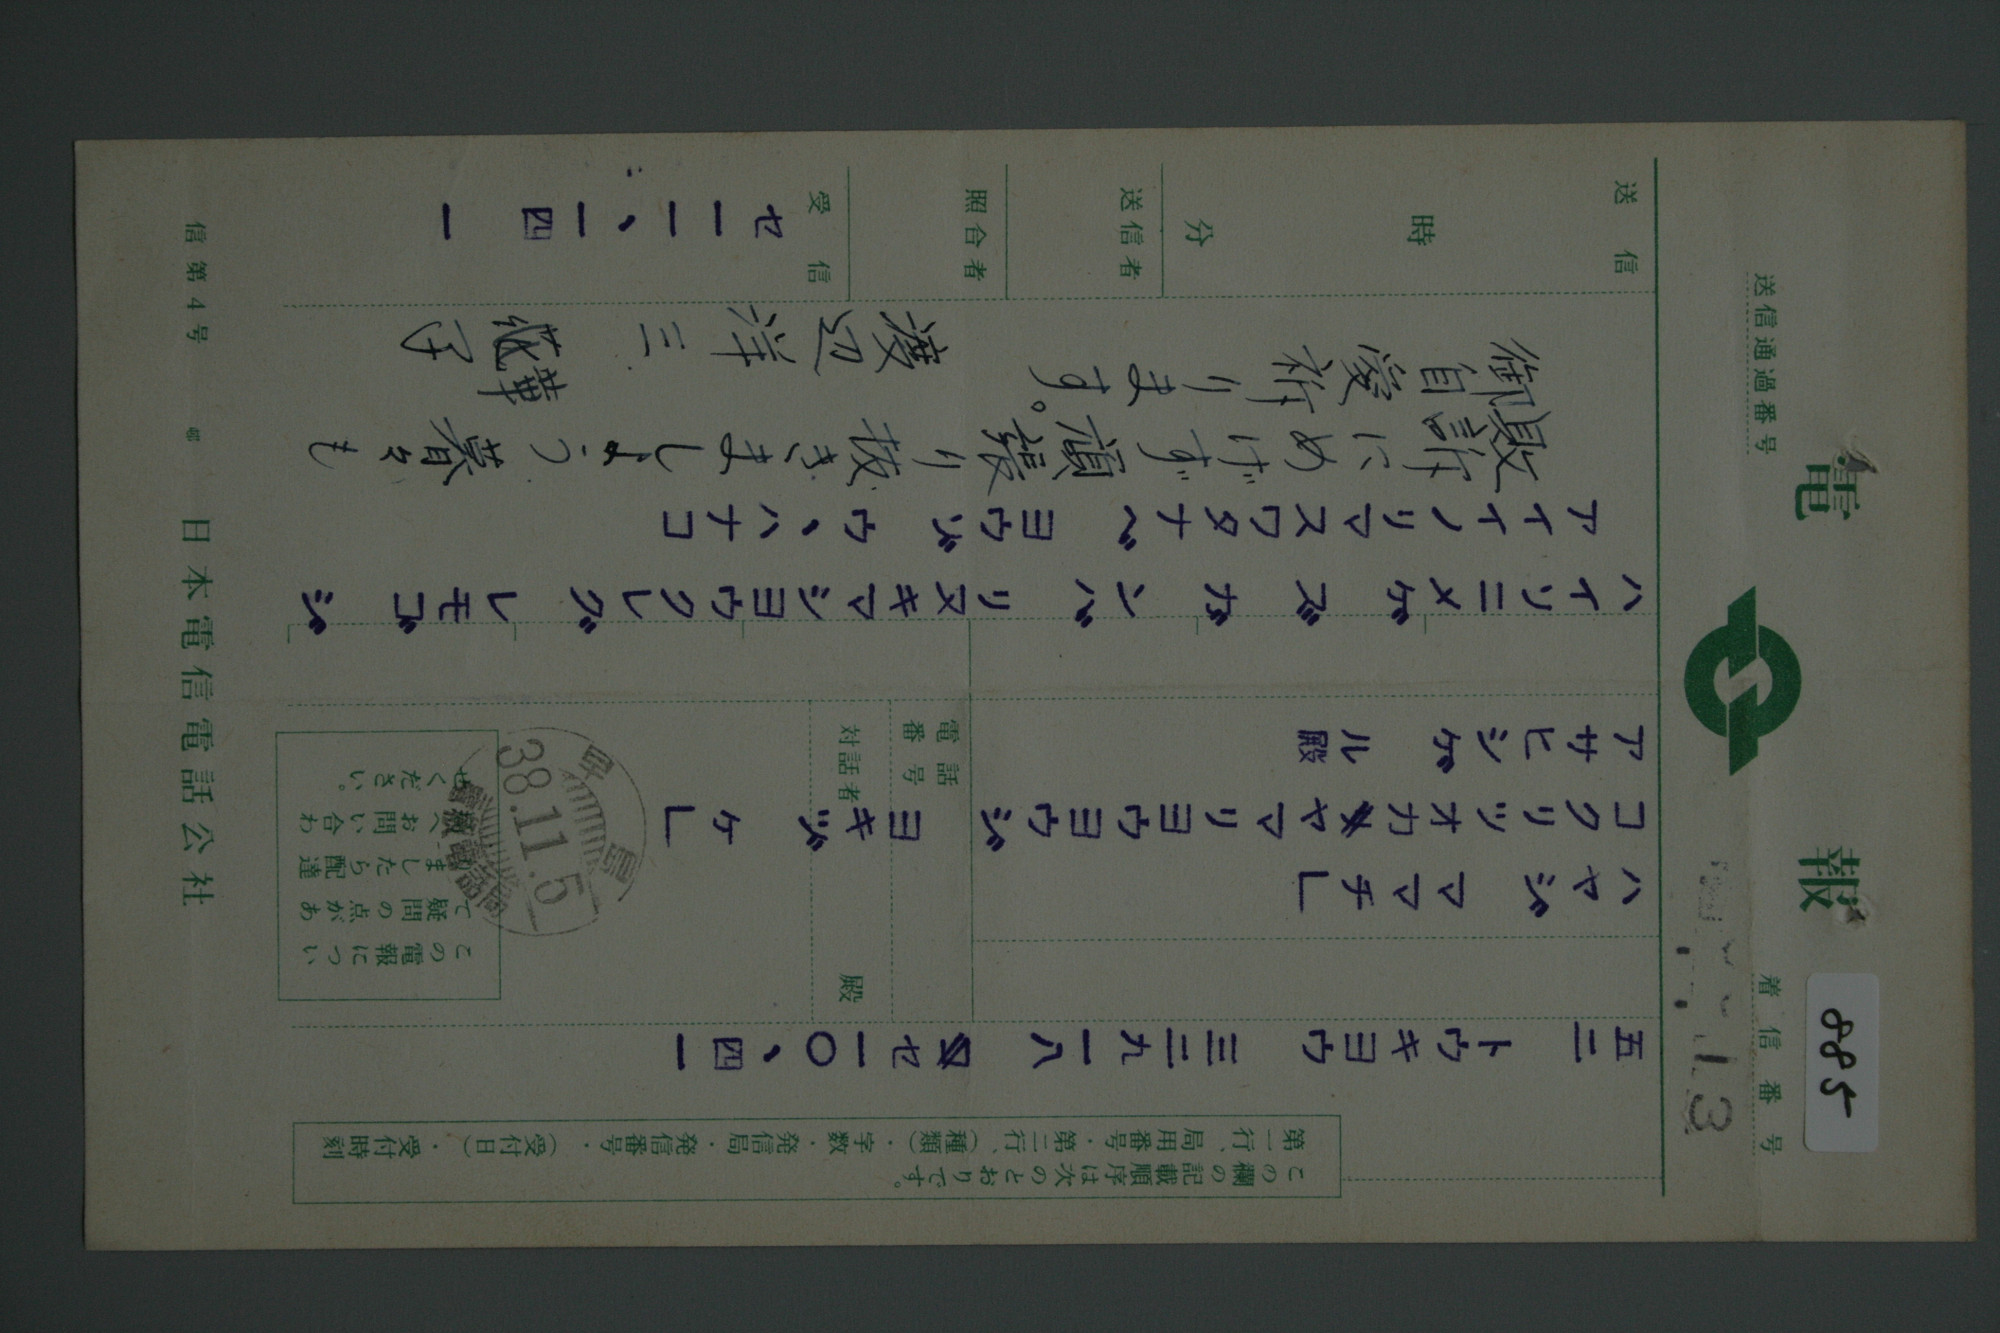 電報
885
着信番号
送信通過番号
13
この欄の記載順序は次のとおりです。
第一行、局用番号・第二行、(種類)・字数・発信局・発信番号・(受付日)・受付時刻
五二 トウキヨウ 三二九一八 セ一〇、四一
ハヤジママチ」
コクリツオカヤマリヨウヨウジヨキヅケ」
アサヒシゲル殿
電話番号
対話者 殿
この電報につい
て疑問の点があ
りましたら配達
局へお問い合わ
せください。
38.11.5
早島
ハイソニメゲズガンバリヌキマシヨウクレグレモゴジ
アイイノリマスワタナベヨウゾウ、ハナコ
敗訴にめげず頑張り抜きましょう 暮々も
御自愛祈ります。
華
渡辺洋三 花子
送信 時 分
送信者
照合者
受信
セ一一、一四 一
信第4号
日本電信電話公社